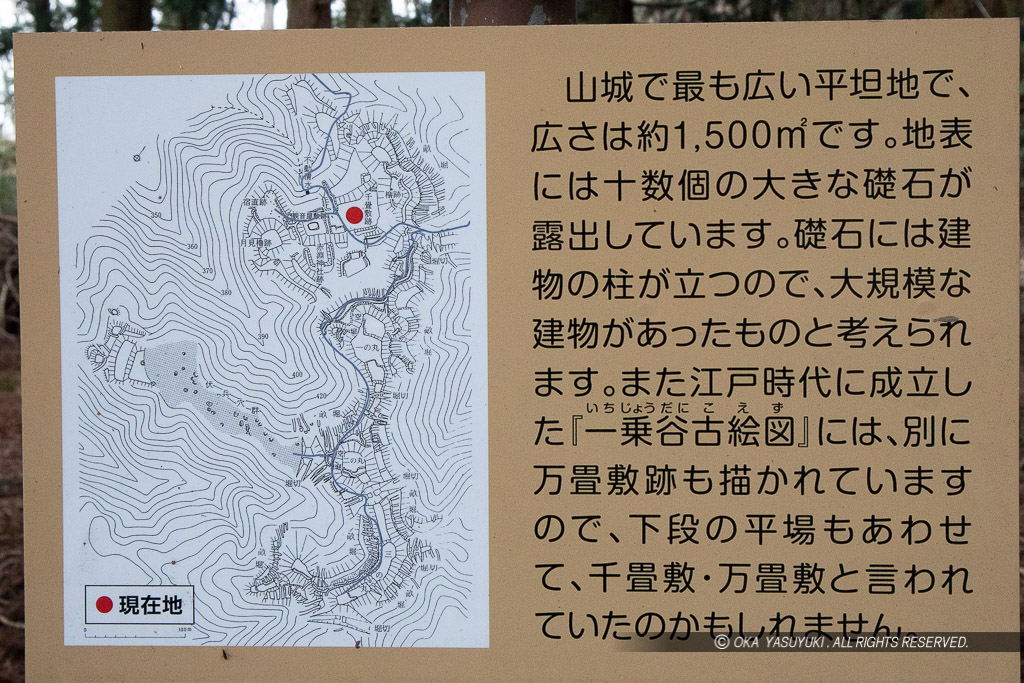 山城で最も広い平坦地で、
広さは約1,500㎡です。地表
には十数個の大きな礎石が
露出しています。礎石には建
物の柱が立つので、大規模な
建物があったものと考えられ
ます。また江戸時代に成立し
いちじょうだにこえず
た『一乗谷古絵図』には、別に
万畳敷跡も描かれています
ので、下段の平場もあわせ
て、千畳敷・万畳敷と言われ
ていたのかもしれません。
不動清水
畝堀
櫓跡
千畳敷跡
宿直跡
観音屋敷跡
月見櫓跡
赤淵神社跡
堀切
350
360
370
380
390
400
420
一の丸
畝堀
畝堀
堀切
伏兵穴群
畝堀
二の丸
堀切
堀切
畝堀
堀切
畝堀
三の丸
畝堀
堀切
畝堀
堀切
現在地
100m
© OKA YASUYUKI. ALL RIGHTS RESERVED.